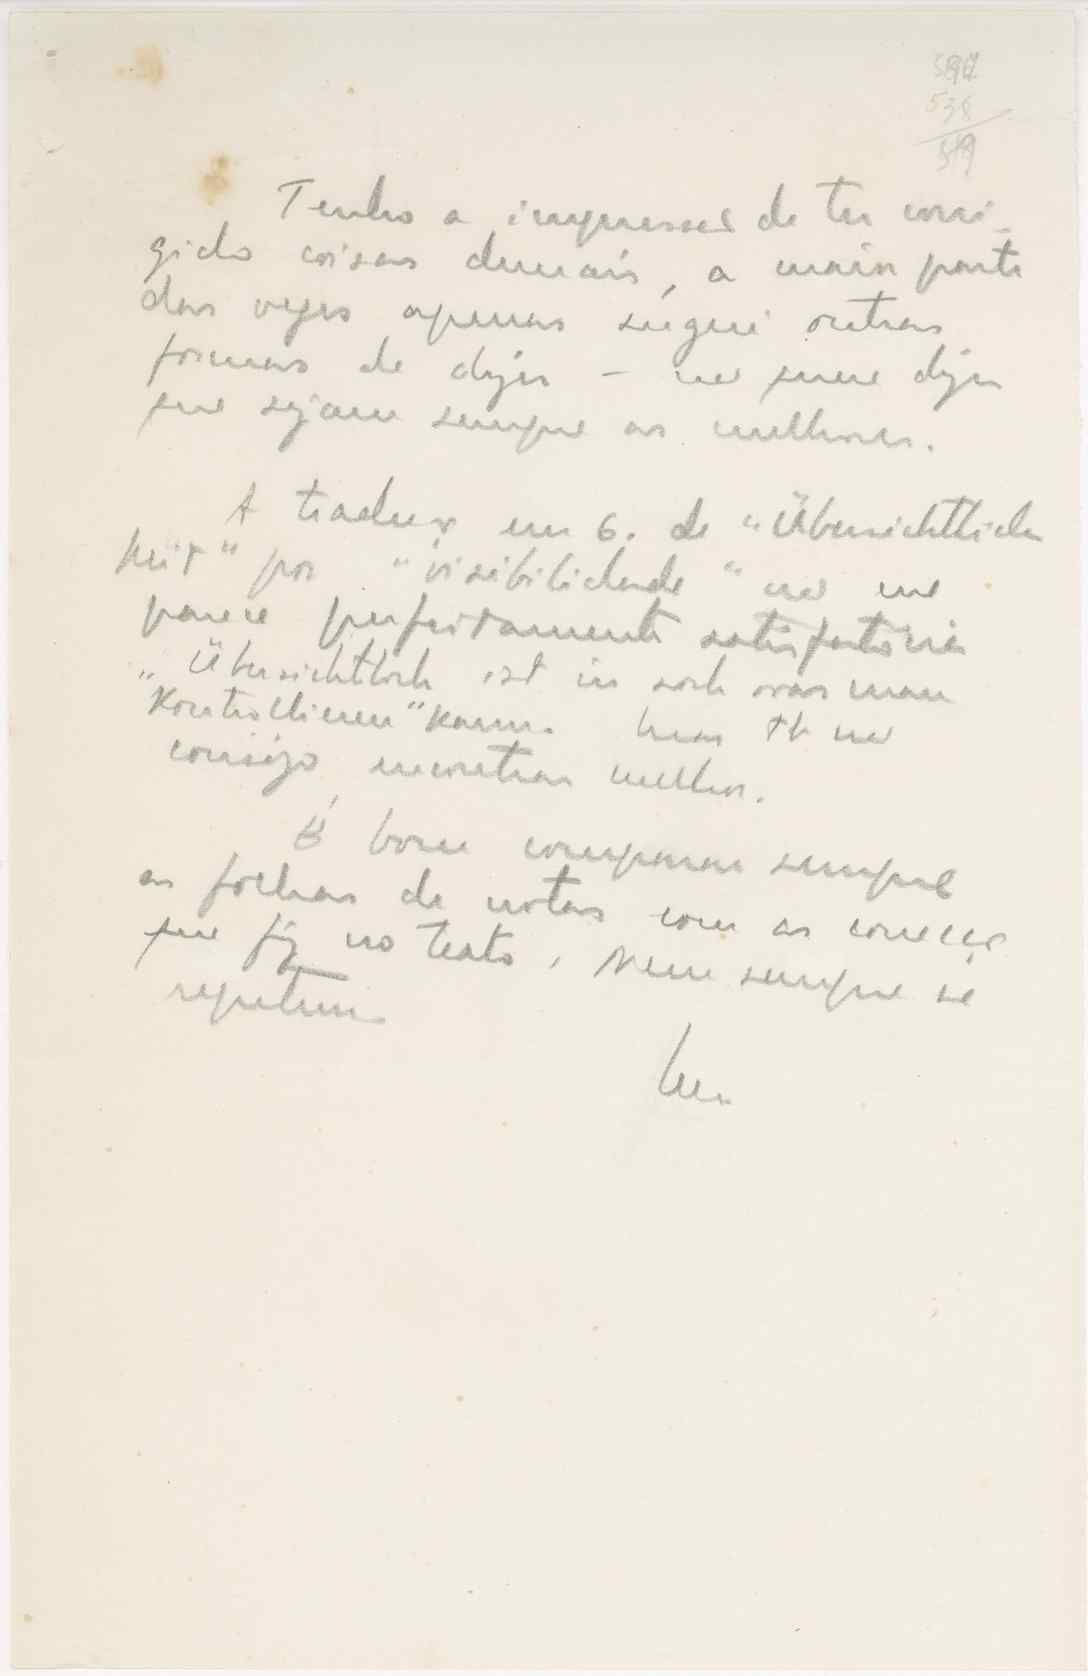 538
Tenho a impressão de ter corri-
gido coisas demais, a maior parte
das vezes apenas sugeri outras
formas de dizer – não quer dizer
que sejam sempre as melhores.
A traduz em 6. de "Übersichtlich
keit" por "visibilidade" não me
parece perfeitamente satisfatória
„Übersichtlich ist in sich was man
Kontrollieren" kann. mas não
consigo encontrar melhor.
É bom comparar sempre
as folhas de notas com as correcç
que fiz no texto, Nem sempre se
repetem.